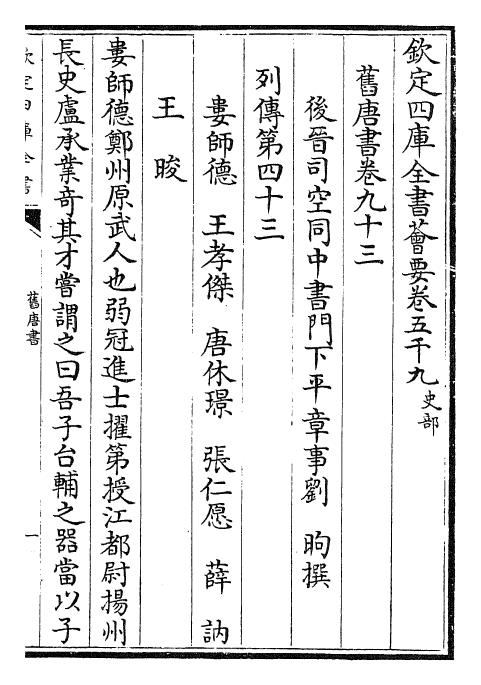 欽定四庫全書薈要卷五千九 史部
舊唐書卷九十三
後晉司空同中書門下平章事劉 昫撰
列傳第四十三
婁師德 王孝傑 唐休璟 張仁愿 薛訥
王晙
婁師德鄭州原武人也弱冠進士擢第授江都尉揚州
長史盧承業奇其才嘗謂之曰吾子台輔之器當以子
欽定四庫全書
舊唐書
一